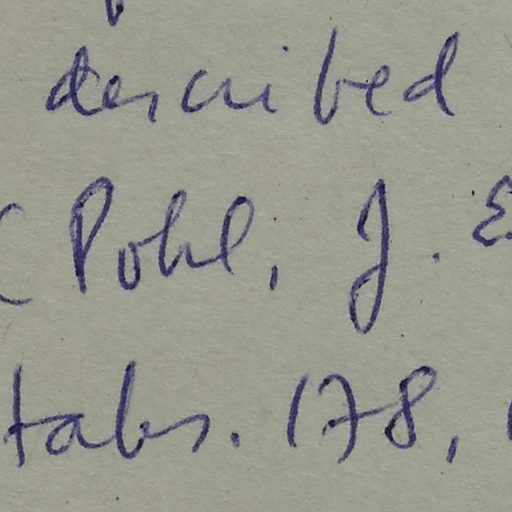 described
(Pohl, J. E
tabs. 178,